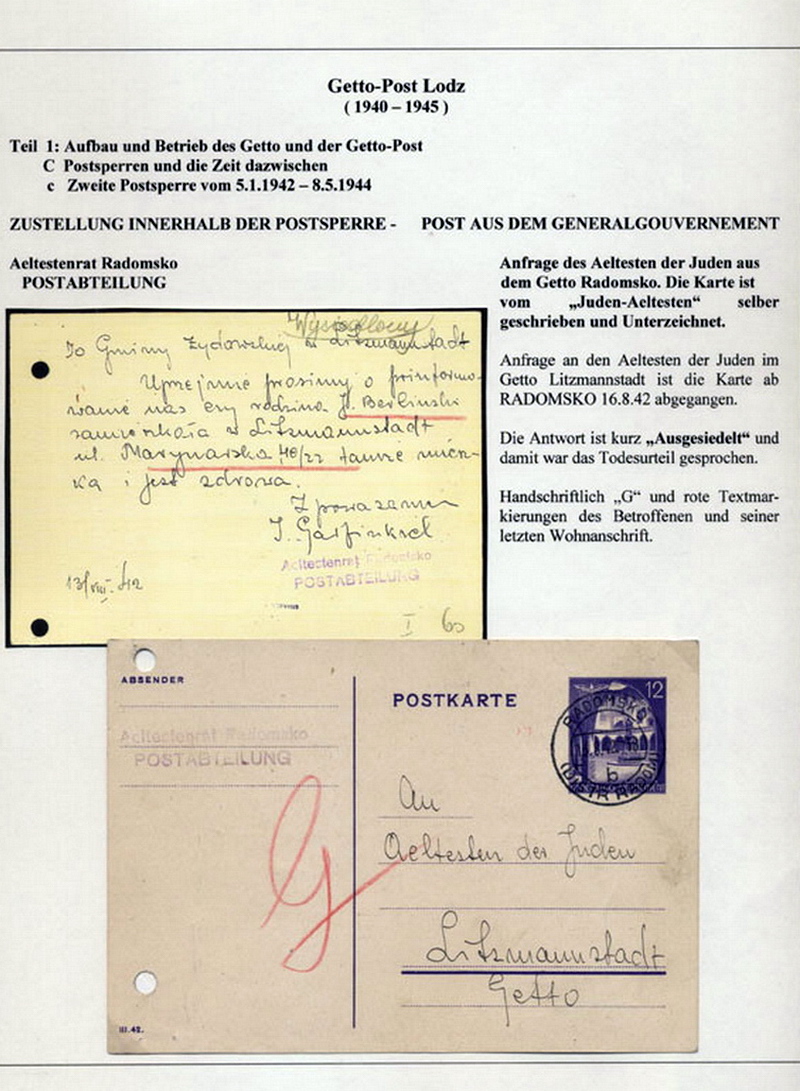 Getto-Post Lodz
( 1940 – 1945 )
Teil 1: Aufbau und Betrieb des Getto und der Getto-Post
C Postsperren und die Zeit dazwischen
c Zweite Postsperre vom 5.1.1942 – 8.5.1944
ZUSTELLUNG INNERHALB DER POSTSPERRE - POST AUS DEM GENERALGOUVERNEMENT
Aeltestenrat Radomsko
POSTABTEILUNG
Anfrage des Aeltesten der Juden aus
dem Getto Radomsko. Die Karte ist
vom „Juden-Aeltesten“ selber
geschrieben und Unterzeichnet.
Anfrage an den Aeltesten der Juden im
Getto Litzmannstadt ist die Karte ab
RADOMSKO 16.8.42 abgegangen.
Die Antwort ist kurz „Ausgesiedelt“ und
damit war das Todesurteil gesprochen.
Handschriftlich „G“ und rote Textmar-
kierungen des Betroffenen und seiner
letzten Wohnanschrift.
Wysiedlony
Do Gminy Żydowskiej w Litzmannstadt
Uprzejmie prosimy o poinformo-
wanie nas czy rodzina J. Berlinski
zamieszkała w Litzmannstadt
ul. Marynarska 40/22 tamże miesz-
ka i jest zdrowa.
Z poważaniem
J. Garfinkiel
Aeltestenrat Radomsko
POSTABTEILUNG
13/VIII. 42
I 60
ABSENDER
Aeltestenrat Radomsko
POSTABTEILUNG
POSTKARTE
12
RADOMSKO
b
(DISTR RADOM)
G
An
Aeltesten der Juden
Litzmannstadt
Getto
III.42.